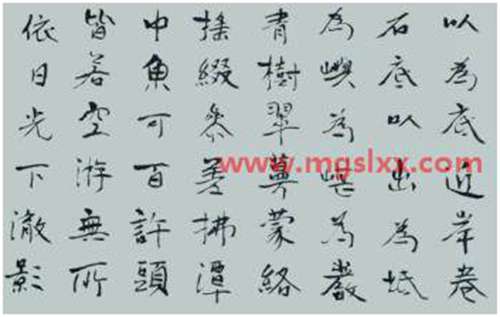 以為底近岸卷
石底以出為坻
為嶼為嵁為巖
青樹翠蔓蒙絡
搖綴參差拂潭
中魚可百許頭
皆若空游無所
依日光下澈影
www.mgslxx.com